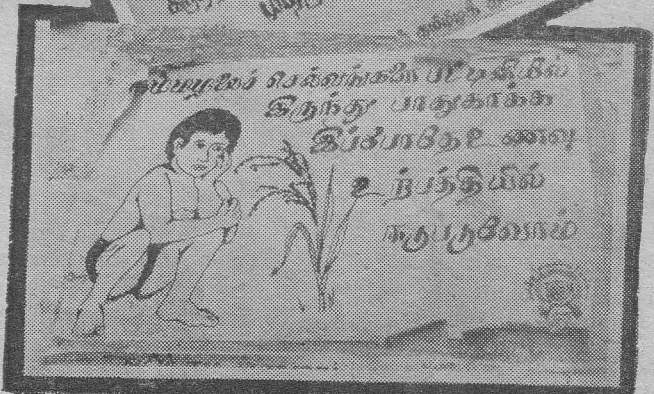 நம்மழலைச் செல்வங்களை பட்டினியில்
இருந்து பாதுகாக்க
இப்போதே உணவு
உற்பத்தியில்
ஈடுபடுவோம்